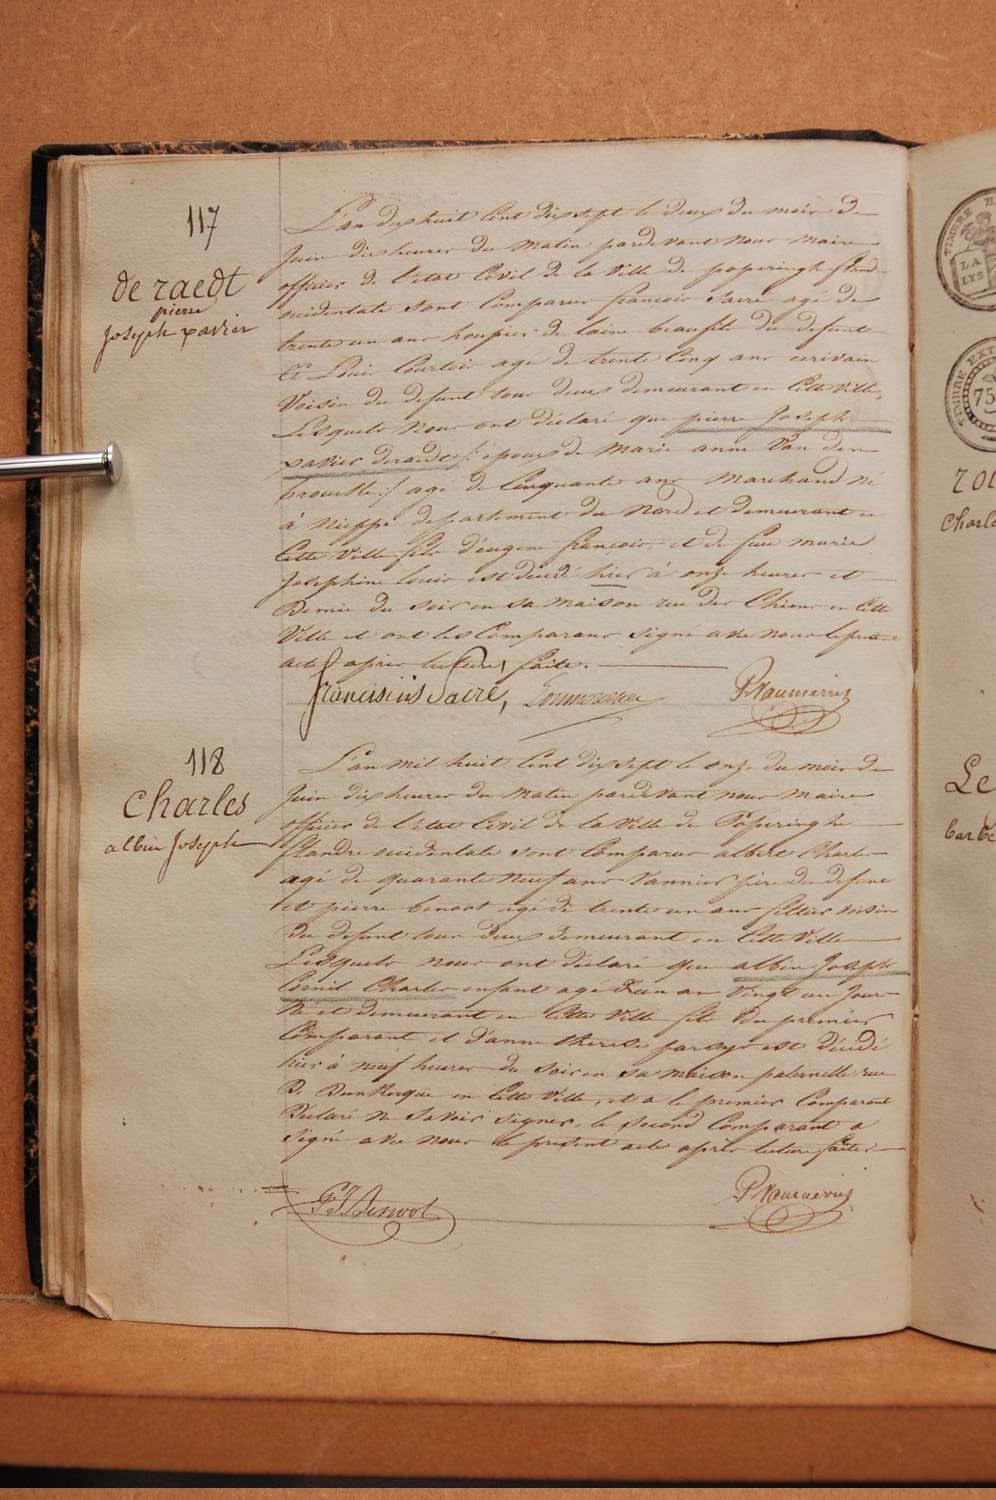 117
de raedt
pierre
Joseph xavier
L'an dix huit Cent dix sept le deux du mois de
Juin dix heures du matin pardevant nous maire
officier de l'état Civil de la Ville de poperinghe fland
occidentale sont Comparus françois Sacré agé de
trente un ans houpier de laine beaufils du defunt
Et Louis Courtois agé de trente Cinq ans ecrivain
Voisin du defunt tous deux demeurant en Cette Ville,
Lesquels nous ont déclaré que pierre Joseph
xavier deraedt /: epoux de Marie anne Van den
brouckke :/ agé de Cinquante ans Marchand né
à Nieppe departement du Nord et demeurant en
Cette Ville fils d'eugene françois, et de feue marie
Josephine louis est décédé hier à onze heures et
Demie du soir en sa maison rue des Chiens en Cette
Ville et ont les Comparans signé avec nous le present
acte après lecture, faite.
franciscus Sacré,
118
Charles
albin Joseph
L'an mil huit Cent dix sept le onze du mois de
Juin dix heures du matin pardevant nous maire
officier de l'état Civil de la Ville de Poperinghe
flandre occidentale sont Comparus albert Charles
agé de quarante neuf ans Vannier père du defunt
et pierre benoot agé de trente un ans sellier voisin
du defunt tous deux demeurant en Cette Ville
Lesquels nous ont déclaré que albin Joseph
Cornil Charles enfant agé d'un an Vingt un Jours
Né et demeurant en Cette Ville fils du premier
Comparant et d'anne therese parsys est décédé
hier à neuf heures du soir en sa maison paternelle rue
De Dunkerque en Cette Ville, et a le premier Comparant
Déclaré ne Savoir signer, le second Comparant a
signé avec nous le present acte après lecture faite.
TIMBRE
LA
LYS
TIMBRE EXT
75
Charl
Le
barb